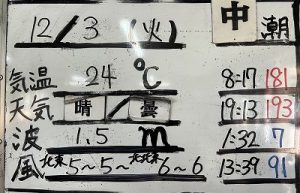 12/3(火) 中潮
気温 24℃ 8:17 181
天気 晴/曇 19:13 193
波 1.5m 1:32 7
風 北東5~5~北北東6~6 13:39 91